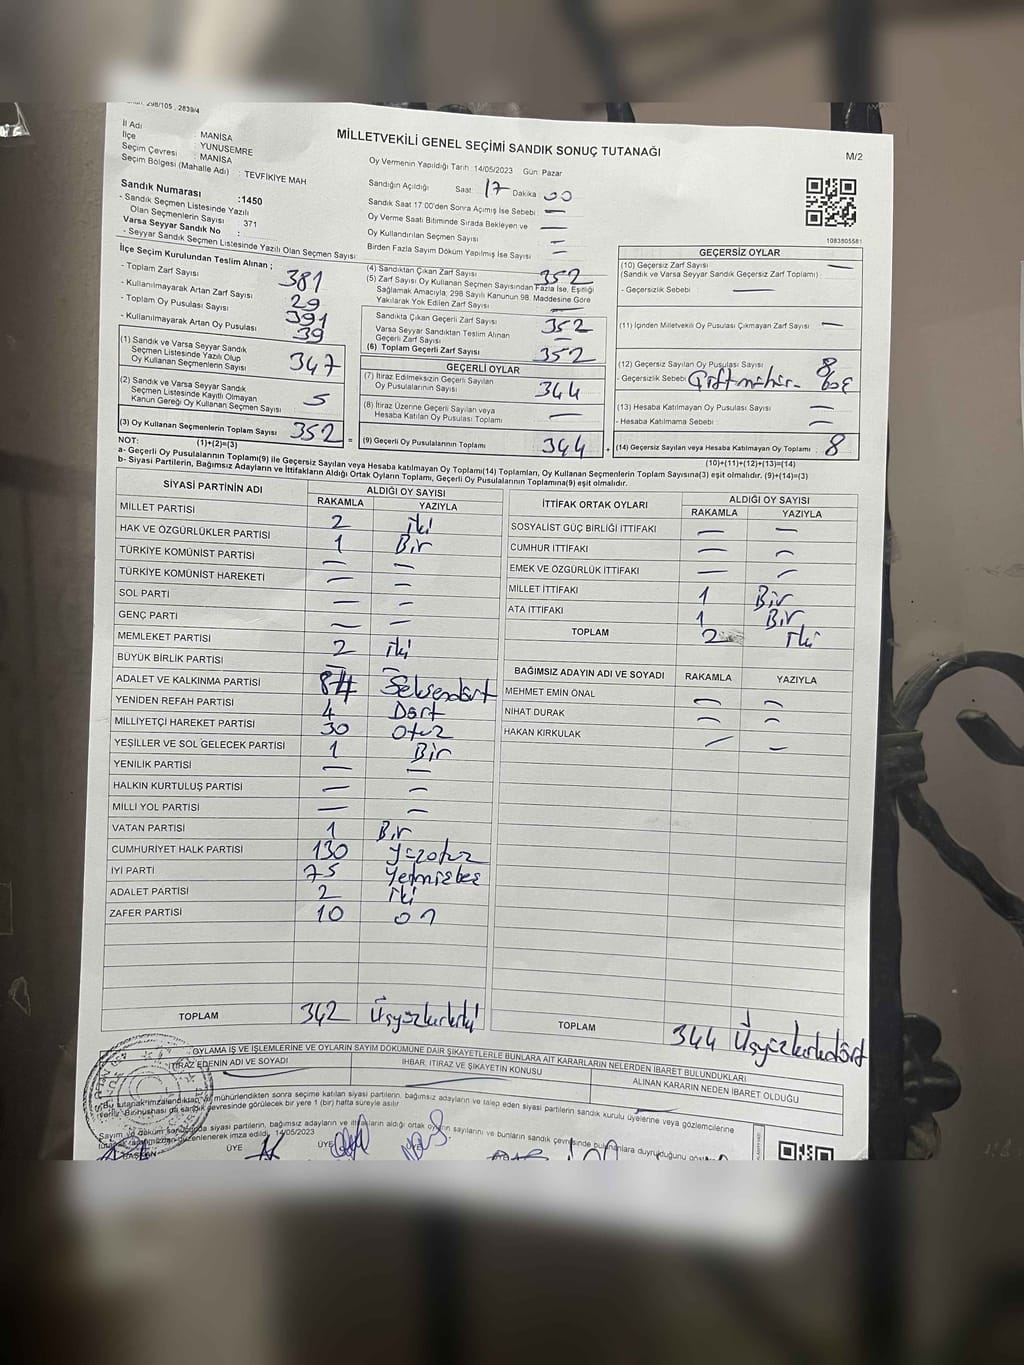 298/105 , 2839/4
MİLLETVEKİLİ GENEL SEÇİMİ SANDIK SONUÇ TUTANAĞI
M/2
İl Adı MANİSA
İlçe YUNUSEMRE
Seçim Çevresi : MANİSA
Seçim Bölgesi (Mahalle Adı) : TEVFİKİYE MAH
Sandık Numarası :1450
- Sandık Seçmen Listesinde Yazılı
Olan Seçmenlerin Sayısı : 371
Varsa Seyyar Sandık No :
- Seyyar Sandık Seçmen Listesinde Yazılı Olan Seçmen Sayısı
Oy Vermenin Yapıldığı Tarih : 14/05/2023 Gün: Pazar
Sandığın Açıldığı Saat 17 Dakika 00
Sandık Saat 17:00'den Sonra Açımış İse Sebebi —
Oy Verme Saati Bitiminde Sırada Bekleyen ve —
Oy Kullandırılan Seçmen Sayısı —
Birden Fazla Sayım Döküm Yapılmış İse Sayısı —
1083805581
İlçe Seçim Kurulundan Teslim Alınan ;
- Toplam Zarf Sayısı 381
- Kullanılmayarak Artan Zarf Sayısı 29
- Toplam Oy Pusulası Sayısı 391
- Kullanılmayarak Artan Oy Pusulası 39
(1) Sandık ve Varsa Seyyar Sandık
Seçmen Listesinde Yazılı Olup
Oy Kullanan Seçmenlerin Sayısı 347
(2) Sandık ve Varsa Seyyar Sandık
Seçmen Listesinde Kayıtlı Olmayan
Kanun Gereği Oy Kullanan Seçmen Sayısı 5
(3) Oy Kullanan Seçmenlerin Toplam Sayısı 352
(1)+(2)=(3)
(4) Sandıktan Çıkan Zarf Sayısı 352
(5) Zarf Sayısı Oy Kullanan Seçmen Sayısından Fazla İse, Eşitliği
Sağlamak Amacıyla; 298 Sayılı Kanunun 98. Maddesine Göre
Yakılarak Yok Edilen Zarf Sayısı —
Sandıkta Çıkan Geçerli Zarf Sayısı 352
Varsa Seyyar Sandıktan Teslim Alınan
Geçerli Zarf Sayısı —
(6) Toplam Geçerli Zarf Sayısı 352
GEÇERLİ OYLAR
(7) İtiraz Edilmeksizin Geçerli Sayılan
Oy Pusulalarının Sayısı 344
(8) İtiraz Üzerine Geçerli Sayılan veya
Hesaba Katılan Oy Pusulası Toplamı —
= (9) Geçerli Oy Pusulalarının Toplamı 344 +
GEÇERSİZ OYLAR
(10) Geçersiz Zarf Sayısı —
(Sandık ve Varsa Seyyar Sandık Geçersiz Zarf Toplamı)
- Geçersizlik Sebebi : —
(11) İçinden Milletvekili Oy Pusulası Çıkmayan Zarf Sayısı —
(12) Geçersiz Sayılan Oy Pusulası Sayısı 8
- Geçersizlik Sebebi
(13) Hesaba Katılmayan Oy Pusulası Sayısı —
- Hesaba Katılmama Sebebi : —
(14) Geçersiz Sayılan veya Hesaba Katılmayan Oy Toplamı : 8
(10)+(11)+(12)+(13)=(14)
NOT:
a- Geçerli Oy Pusulalarının Toplamı(9) ile Geçersiz Sayılan veya Hesaba katılmayan Oy Toplamı(14) Toplamları, Oy Kullanan Seçmenlerin Toplam Sayısına(3) eşit olmalıdır. (9)+(14)=(3)
b- Siyasi Partilerin, Bağımsız Adayların ve İttifakların Aldığı Ortak Oyların Toplamı, Geçerli Oy Pusulalarının Toplamına(9) eşit olmalıdır.
SİYASİ PARTİNİN ADI ALDIĞI OY SAYISI
RAKAMLA YAZIYLA
MİLLET PARTİSİ 2 iki
HAK VE ÖZGÜRLÜKLER PARTİSİ 1 Bir
TÜRKİYE KOMÜNİST PARTİSİ — —
TÜRKİYE KOMÜNİST HAREKETİ — —
SOL PARTİ — —
GENÇ PARTİ — —
MEMLEKET PARTİSİ 2 iki
BÜYÜK BİRLİK PARTİSİ — —
ADALET VE KALKINMA PARTİSİ 84 Seksendört
YENİDEN REFAH PARTİSİ 4 Dört
MİLLİYETÇİ HAREKET PARTİSİ 30 Otuz
YEŞİLLER VE SOL GELECEK PARTİSİ 1 Bir
YENİLİK PARTİSİ — —
HALKIN KURTULUŞ PARTİSİ — —
MİLLİ YOL PARTİSİ — —
VATAN PARTİSİ 1 Bir
CUMHURİYET HALK PARTİSİ 130 yüzotuz
İYİ PARTİ 75 Yetmişbeş
ADALET PARTİSİ 2 iki
ZAFER PARTİSİ 10 on
TOPLAM 342 Üçyüzkırkiki
İTTİFAK ORTAK OYLARI ALDIĞI OY SAYISI
RAKAMLA YAZIYLA
SOSYALİST GÜÇ BİRLİĞİ İTTİFAKI — —
CUMHUR İTTİFAKI — —
EMEK VE ÖZGÜRLÜK İTTİFAKI — —
MİLLET İTTİFAKI 1 Bir
ATA İTTİFAKI 1 Bir
TOPLAM 2 iki
BAĞIMSIZ ADAYIN ADI VE SOYADI RAKAMLA YAZIYLA
MEHMET EMİN ÖNAL — —
NİHAT DURAK — —
HAKAN KIRKULAK — —
TOPLAM 344 Üçyüzkırkdört
OYLAMA İŞ VE İŞLEMLERİNE VE OYLARIN SAYIM DÖKÜMÜNE DAİR ŞİKAYETLERLE BUNLARA AİT KARARLARIN NELERDEN İBARET BULUNDUKLARI
İTİRAZ EDENİN ADI VE SOYADI İHBAR, İTİRAZ VE ŞİKAYETİN KONUSU ALINAN KARARIN NEDEN İBARET OLDUĞU
Bu tutanak imzalandıktan ve mühürlendikten sonra seçime katılan siyasi partilerin, bağımsız adayların ve talep eden siyasi partilerin sandık kurulu üyelerine veya gözlemcilerine
verilir. Bir nüshası da sandık çevresinde görülecek bir yere 1 (bir) hafta süreyle asılır
Sayım ve döküm sonucunda siyasi partilerin, bağımsız adayların ve ittifakların aldığı ortak oyların sayılarını ve bunların sandık çevresinde bulunanlara duyrukduğunu
tutanak tarafımızdan düzenlenerek imza edildi. 14/05/2023
BAŞKAN ÜYE ÜYE